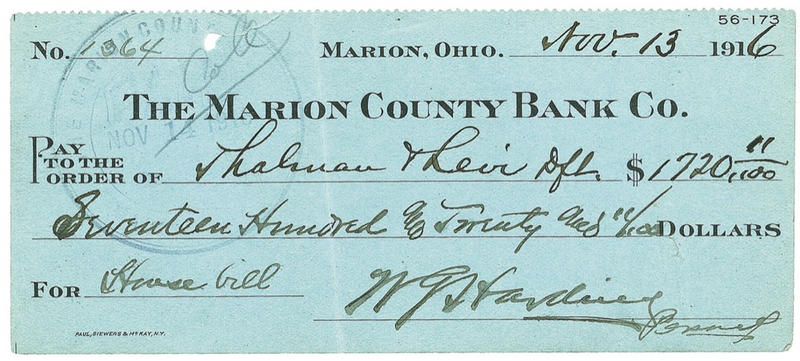 56-173
No. 1364 MARION, OHIO. Nov. 13 1916
THE MARION COUNTY BANK CO.
PAY TO THE ORDER OF Thalman & Levi Dft. $1720.11/100
Seventeen Hundred & Twenty and 11/100 DOLLARS
FOR House bill
W G Harding
Personal
PAUL, SIEWERS & McKAY, N.Y.
THE MARION COUNTY
NOV 14